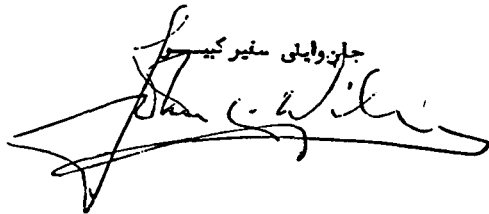 جان وایلی سفیر کبیر
John C. Wiley